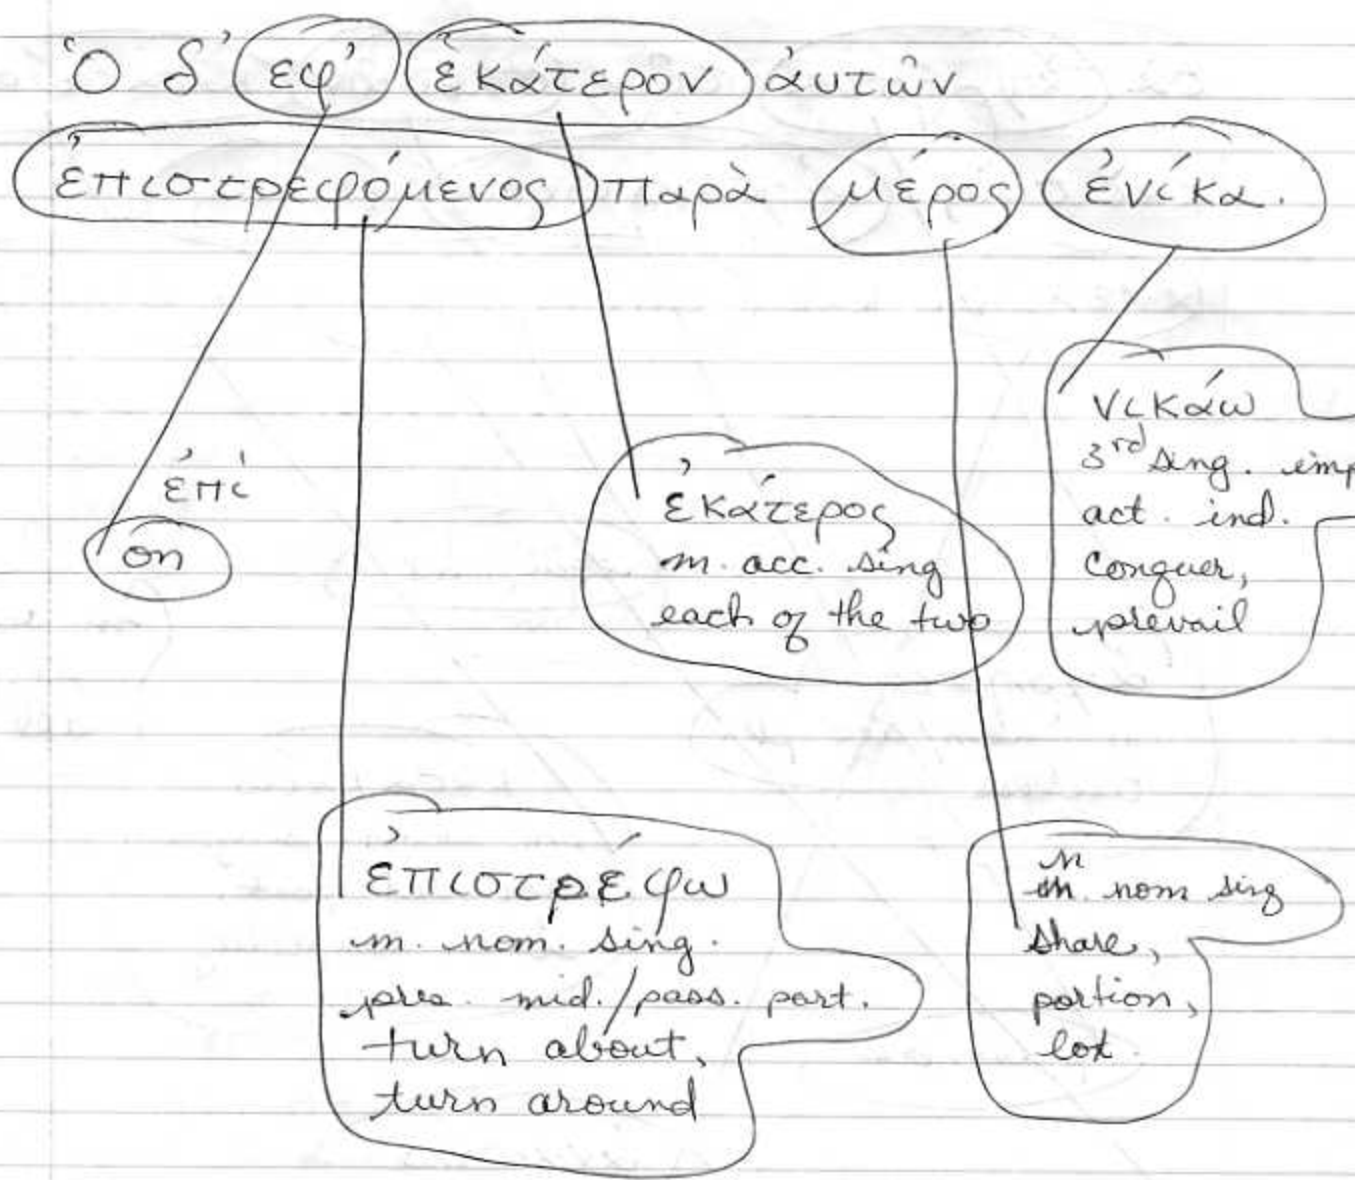 Ὁ δ' εφ' ἑκάτερον ἀυτῶν
ἐπιστρεφόμενος παρὰ μέρος ἐνίκα.
ἐπὶ
on
ἑκάτερος
m. acc. sing
each of the two
νικάω
3rd sing. imp
act. ind.
conquer,
prevail
ἐπιστρέφω
m. nom. sing.
pres. mid./pass. part.
turn about,
turn around
n
m. nom sing
share,
portion,
lot.